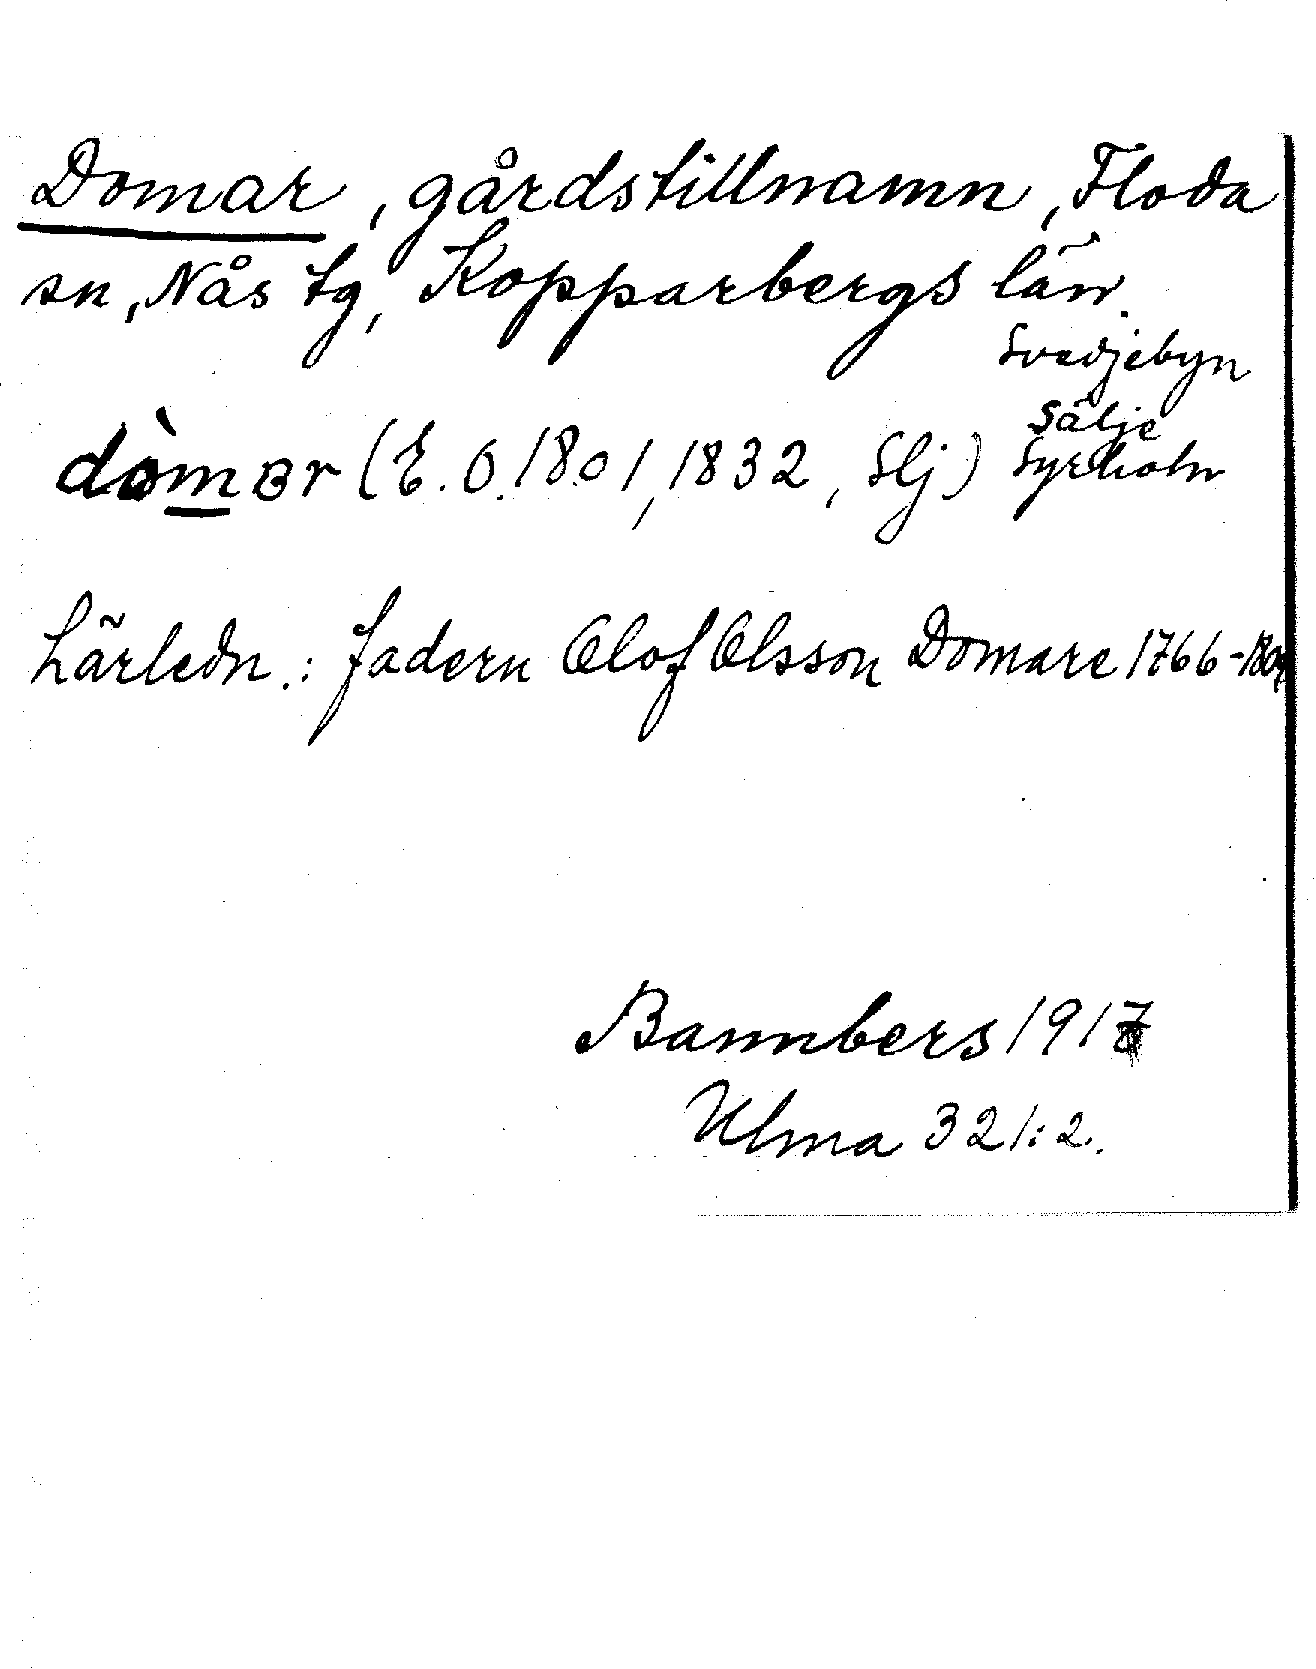 Domar, gårdstillnamn, Floda
sn, Nås tg, Kopparbergs län.
Svedjebyn
Sälje
dòmar (E. O. 1801, 1832, Slj) Syrholn
härledn.: fadern Olof Olsson Domare 1766-180
Bannbers 1917
Ulma 321:2.